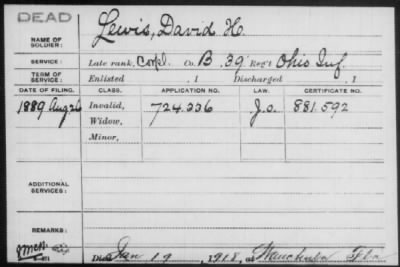 DEAD
NAME OF SOLDIER: Lewis, David H.
SERVICE: Late rank, Corpl. Co. B, 39 Reg't Ohio Inf.
TERM OF SERVICE: Enlisted , 1 Discharged , 1
DATE OF FILING. CLASS. APPLICATION NO. LAW. CERTIFICATE NO.
1889 Aug 26 Invalid, 724.336 J.O. 881.592
Widow,
Minor,
ADDITIONAL SERVICES:
REMARKS:
Died Jan 19, 1918, at Fla